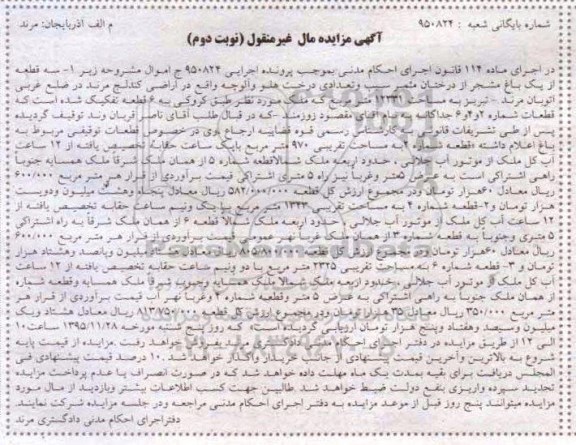 شماره بایگانی شعبه : ۹۵۰۸۲۴
م الف آذربایجان: مرند
آگهی مزایده مال غیرمنقول (نوبت دوم)
در اجرای ماده ۱۱۴ قانون اجرای احکام مدنی بموجب پرونده اجرایی ۹۵۰۸۲۴ ج اموال مشروحه زیر ۱- سه قطعه
از یک باغ مشجر از درختان مثمر سیب و تعدادی درخت هلو وآلوچه واقع در اراضی کندلج مرند در ضلع غربی
اتوبان مرند - تبریز به مساحت که ملک مورد نظر طبق کروکی به ۶ قطعه تفکیک شده است که
قطعات شماره ۲و۴و۶ جداگانه آقای مقصود روزمش که در قبال طلب آقای ناصر قربان وند توقیف گردیده
پس از طی تشریفات قانونی رسمی قوه قضاییه ارجاع وی در خصوص قطعات توقیفی مربوط به
باغ اعلام داشته «قطعه شماره ۲ به مساحت تقریبی ۹۷۰ متر مربع بایک ساعت حقابه تخصیص یافته از ۱۲ ساعت
آب کل ملک از موتور آب جلالی حدود اربعه ملک شمالاقطعه شماره ۵ از همان ملک شرقا ملک همسایه جنوبا
راهی اشتراکی است به عرض ۵متر وغربا نیز راه ۵ متری اشتراکی قیمت برآوردی از قرار هر متر مربع ۶۰۰/۰۰۰
ریال معادل ۶۰هزار تومان ودر مجموع ارزش کل قطعه ۵۸۲/۰۰۰/۰۰۰ ریال معادل پنجاه وهشت میلیون ودویست
هزار تومان و۲-قطعه شماره ۴ به مساحت تقریبی ۱۳۳۳ متر مربع با یک ونیم ساعت حقابه تخصیص یافته از
۱۲ ساعت آب کل ملک از موتور آب جلالی حدود اربعه ملک شمالا قطعه ۶ از همان ملک شرقا به راه اشتراکی
۵ متری وجنوبا به قطعه شماره ۳ از همان ملک وغربا نهر عمومی قیمت برآوردی از قرار هر متر مربع ۶۰۰/۰۰۰
ریال معادل ۶۰هزار تومان ودر مجموع ارزش کل قطعه میلیون وپانصد وهشتاد هزار
تومان و ۳- قطعه شماره ۶ به مساحت تقریبی ۲۳۲۵ متر مربع با دو ونیم ساعت حقابه تخصیص یافته از ۱۲ ساعت
آب کل ملک از موتور آب جلالی حدود اربعه ملک شمالا ملک همسایه وجنوبا شرقا ملک همسایه وقطعه شماره
از همان ملک جنوبا به راهی اشتراکی به عرض ۵ متر وقطعه شماره ۴ وغربا نهر آب قیمت برآوردی از قرار هر
متر مربع ۳۵۰/۰۰۰ ریال معادل ۳۵هزار تومان ودر مجموع ارزش کل قطعه ۸۱۳/۷۵۰/۰۰۰ ریال معادل هشتاد ویک
میلیون وسیصد وهفتاد وپنج هزار تومان ارزیابی گردیده است» که روز پنج شنبه مورخه ۱۳۹۵/۱۱/۲۸ ساعت۱۰
الی ۱۲ از طریق مزایده در دفتر اجرای احکام مدنی دادگستری مرند بفروش خواهد رفت .مزایده از قیمت پایه
شروع به بالاترین وآخرین قیمت پیشنهادی از جانب خریدار واگذار خواهد شد. ۱۰ درصد قیمت پیشنهادی فی
المجلس دریافت برای بقیه بمدت یک ماه مهلت داده خواهد شد که در صورت انصراف یا عدم پرداخت مزایده
تجدید سپرده واریزی بنفع دولت ضبط خواهد شد. طالبین جهت کسب اطلاعات بیشتر وبازدید از مال مورد
مزایده میتوانند پنج روز قبل از موعد مزایده به دفتر اجرای احکام مدنی مراجعه ودر جلسه مزایده شرکت نمایند.
دفتراجرای احکام مدنی دادگستری مرند